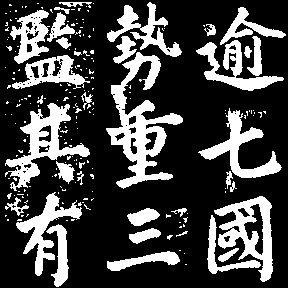 逾七國
勢重三
監其有